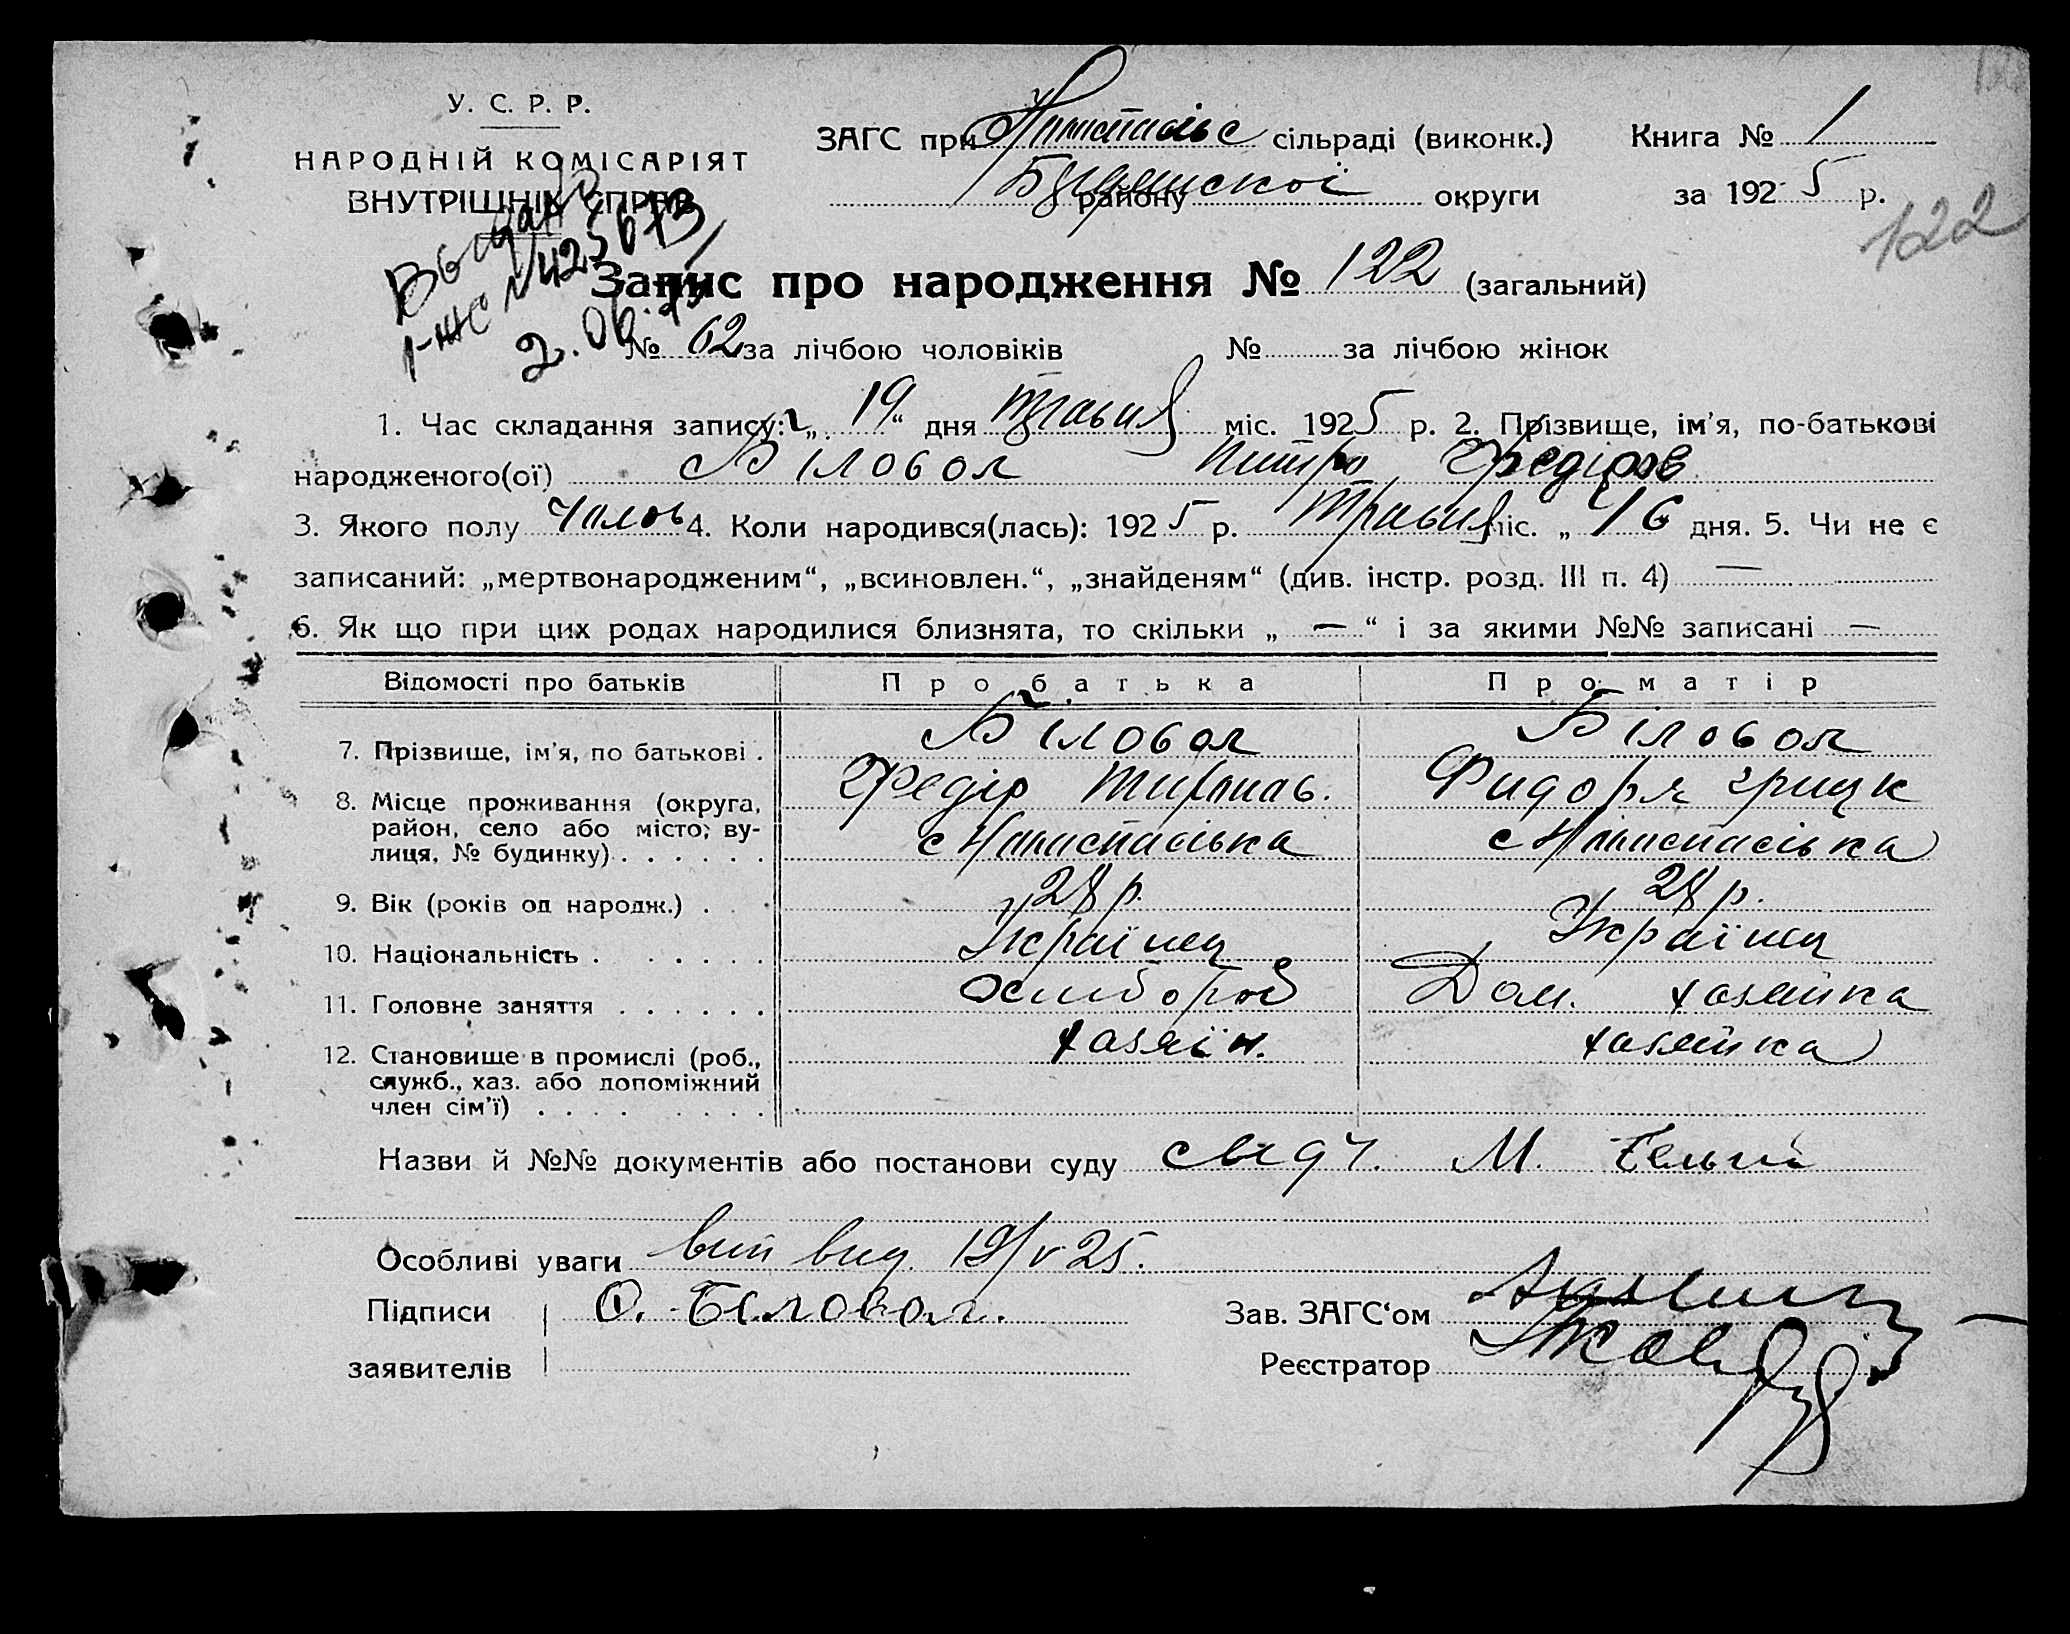 У. С. Р. Р.
НАРОДНІЙ КОМІСАРІЯТ
ВНУТРІШНІХ СПРАВ
ЗАГС при сільраді (виконк.) Книга № 1
району округи за 1925 р.
122
Выдано
I-ЖС № 425673
2.06.
Запис про народження № 122 (загальний)
№ 62 за лічбою чоловіків № за лічбою жінок
1. Час складання запису: „ 19 “ дня Травня міс. 1925 р. 2. Прізвище, ім'я, по-батькові
народженого(ої) Біловол Петро Федіров
3. Якого полу Чолов 4. Коли народився(лась): 1925 р. Травня міс. „ 16 дня. 5. Чи не є
записаний: „мертвонародженим“, „всиновлен.“, „знайденям“ (див. інстр. розд. III п. 4) —
6. Як що при цих родах народилися близнята, то скільки „ — “ і за якими №№ записані —
Відомості про батьків Про батька Про матір
7. Прізвище, ім'я, по батькові . Біловол Біловол
Федір
8. Місце проживання (округа,
район, село або місто, ву-
лиця, № будинку) . . . . . .
9. Вік (років од народж.) . . 28 р. 28 р.
10. Національність . . . . . . Українец Українец
11. Головне заняття . . . . . . Хлібороб Дом. хазяйка
12. Становище в промислі (роб., хазяїн. хазяйка
служб., хаз. або допоміжний
член сім'ї) . . . . . . . .
Назви й №№ документів або постанови суду М.
Особливі уваги вип вид. 19/V 25.
Підписи О. Біловол.
заявителів
Зав. ЗАГС'ом
Реєстратор